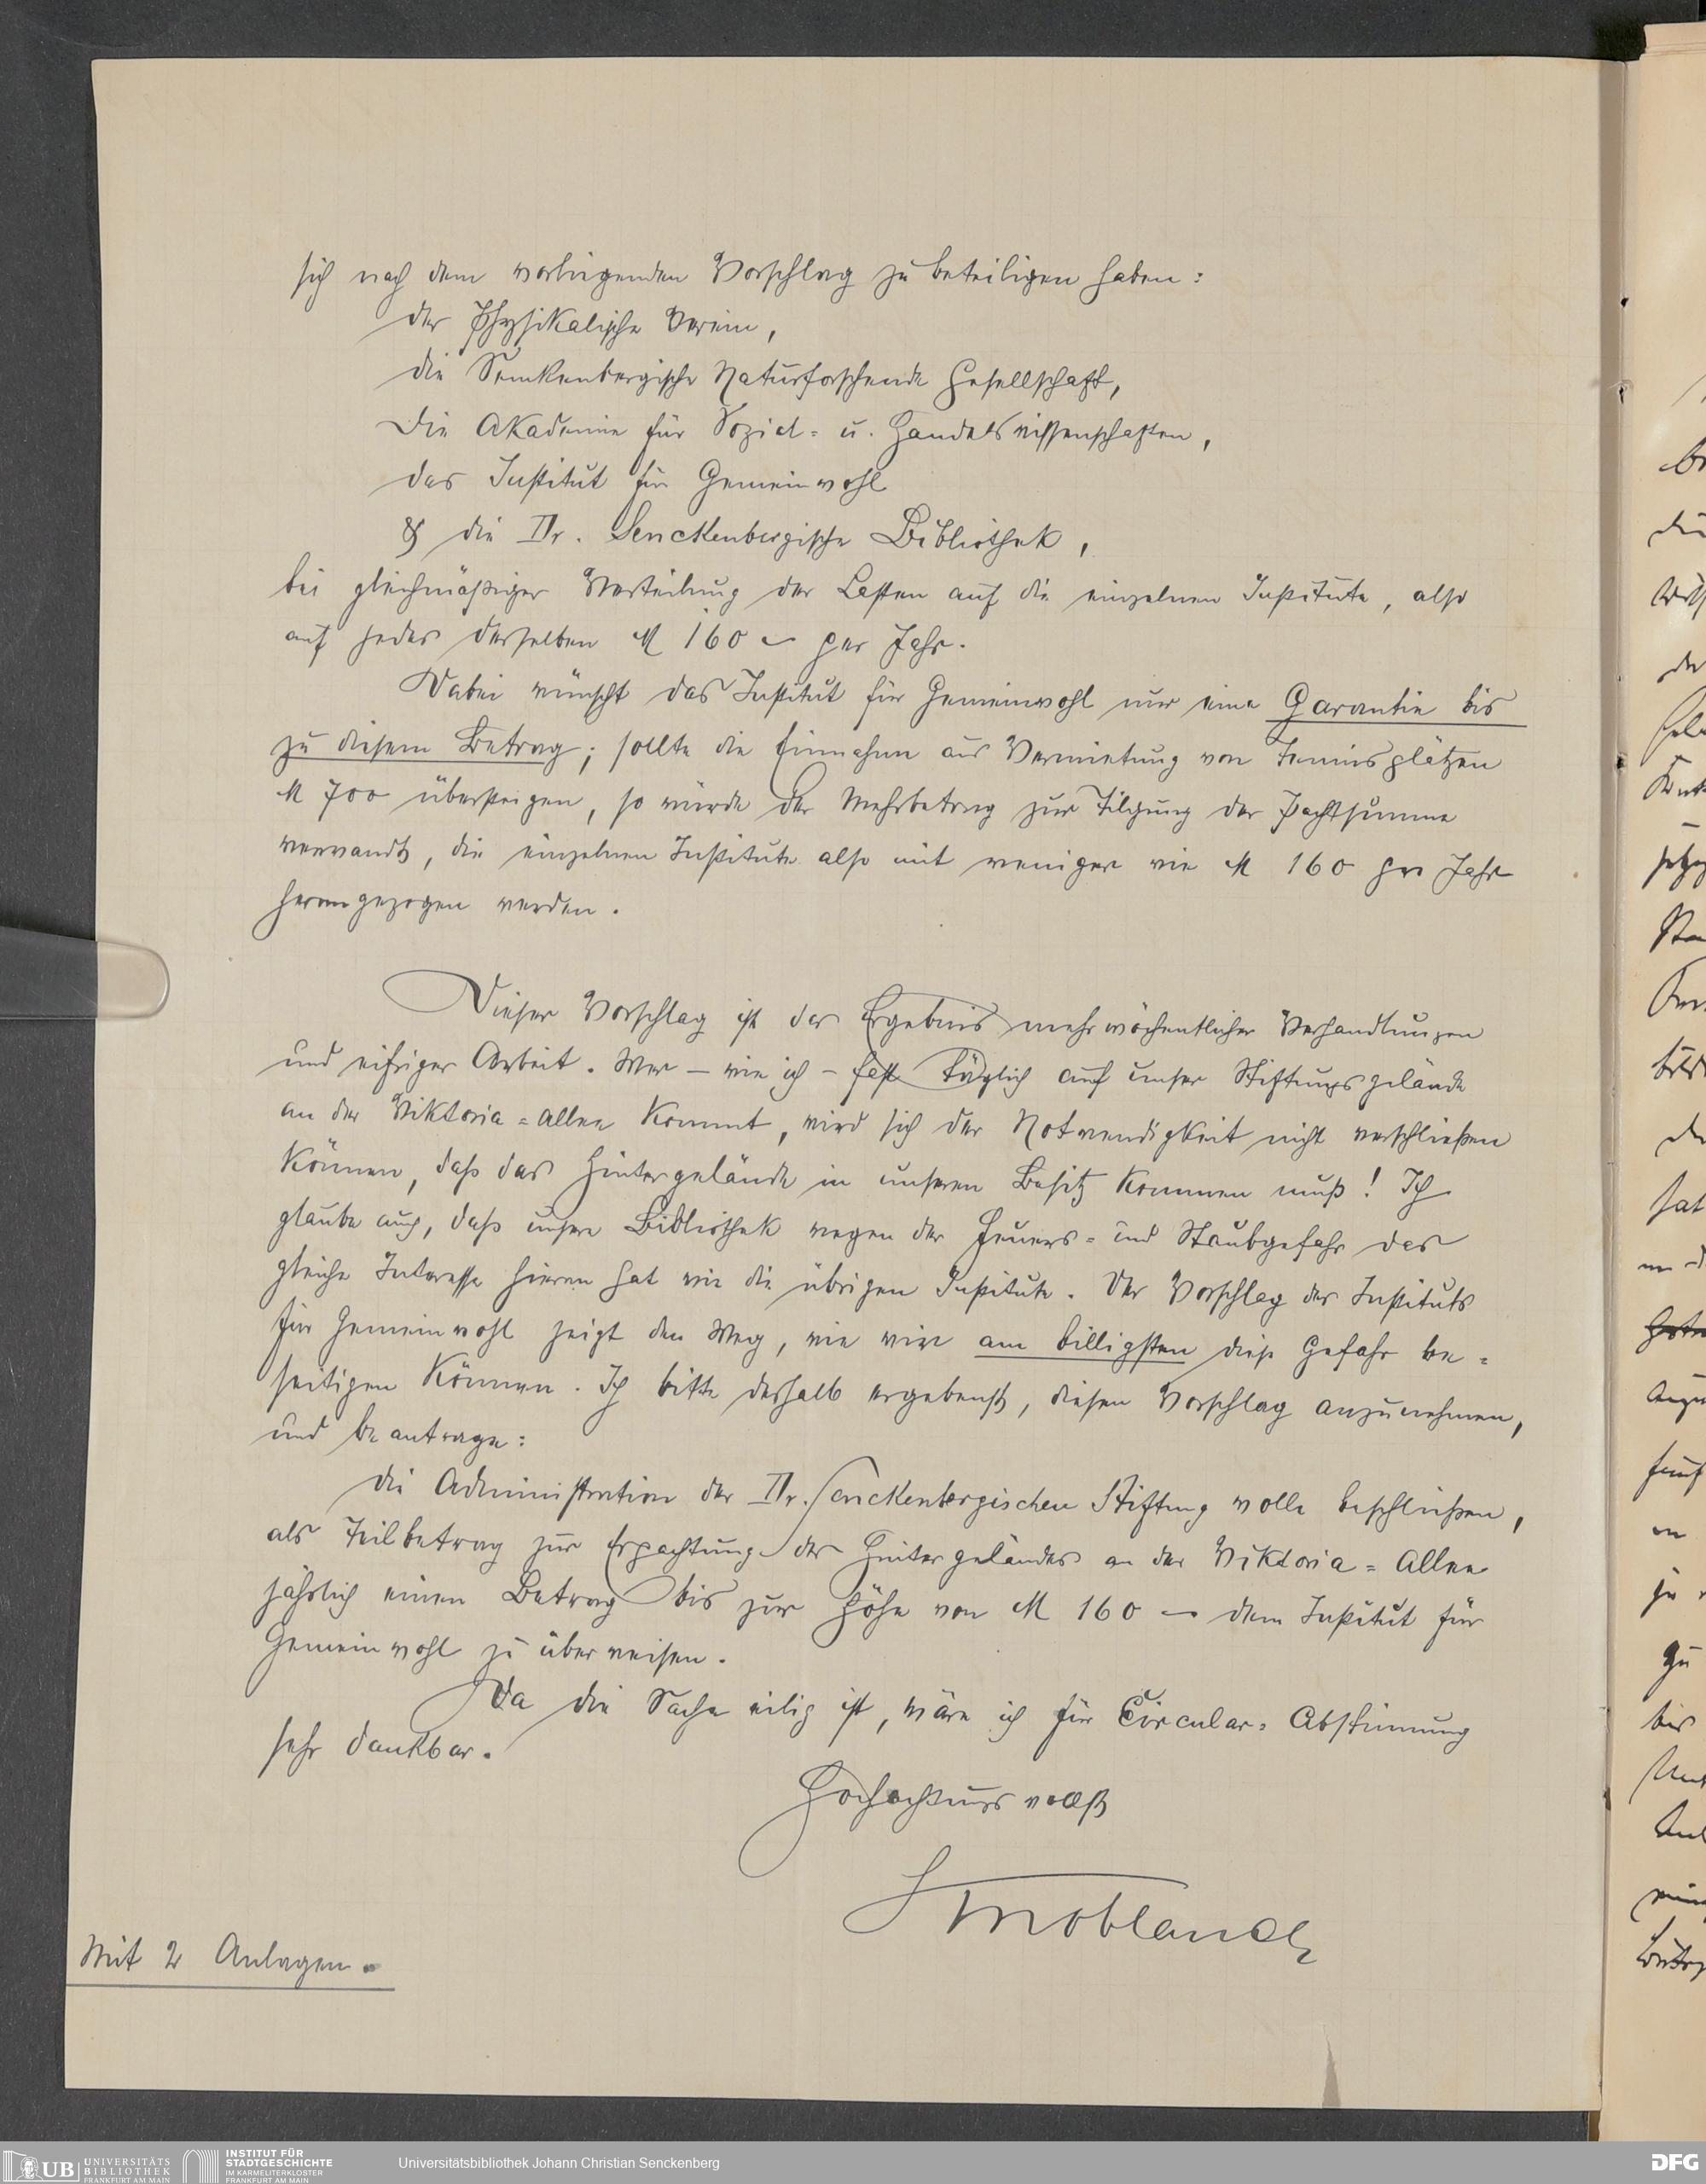 sich nach dem vorliegenden Vorschlag zu beteiligen haben:
der Physikalische Verein,
die Senckenbergische Naturforschende Gesellschaft,
Die Akademie für Sozial- u. Handelswissenschaften,
das Institut für Gemeinwohl
& die Dr. Senckenbergische Bibliothek,
bei gleichmäßiger Verteilung der Lasten auf die einzelnen Institute, also
auf jedes derselben M 160 – per Jahr.
Dabei wünscht das Institut für Gemeinwohl nur eine Garantie bis
zu diesem Betrag; sollte die Einnahme aus Vermietung von Tennisplätzen
M 700 übersteigen, so würde der Mehrbetrag zur Tilgung der Pachtsumme
verwandt, die einzelnen Institute also mit weniger wie M 160 per Jahr
herangezogen werden.
Dieser Vorschlag ist das Ergebnis mehrwöchentlicher Verhandlungen
und eifriger Arbeit. Wer – wie ich – fast täglich auf unser Stiftungsgelände
an der Viktoria-Allee kommt, wird sich der Notwendigkeit nicht verschließen
können, daß das Hintergelände in unseren Besitz kommen muß! Ich
glaube auch, daß unsere Bibliothek wegen der Feuers- und Staubgefahr das
gleiche Interesse hieran hat wie die übrigen Institute. Der Vorschlag des Instituts
für Gemeinwohl zeigt den Weg, wie wir am billigsten diese Gefahr be-
seitigen können. Ich bitte deshalb ergebenst, diesen Vorschlag anzunehmen,
und beantrage:
die Administration der Dr. Senckenbergischen Stiftung wolle beschließen,
als Teilbetrag zur Erpachtung des Hintergeländes an der Viktoria-Allee
jährlich einen Betrag bis zur Höhe von M 160 – dem Institut für
Gemeinwohl zu überweisen.
Da die Sache eilig ist, wäre ich für Circular-Abstimmung
sehr dankbar.
Hochachtungsvollst
Knoblauch
Mit 2 Anlagen.
UB UNIVERSITÄTS
BIBLIOTHEK
FRANKFURT AM MAIN
INSTITUT FÜR
STADTGESCHICHTE
IM KARMELITERKLOSTER
FRANKFURT AM MAIN
Universitätsbibliothek Johann Christian Senckenberg
DFG